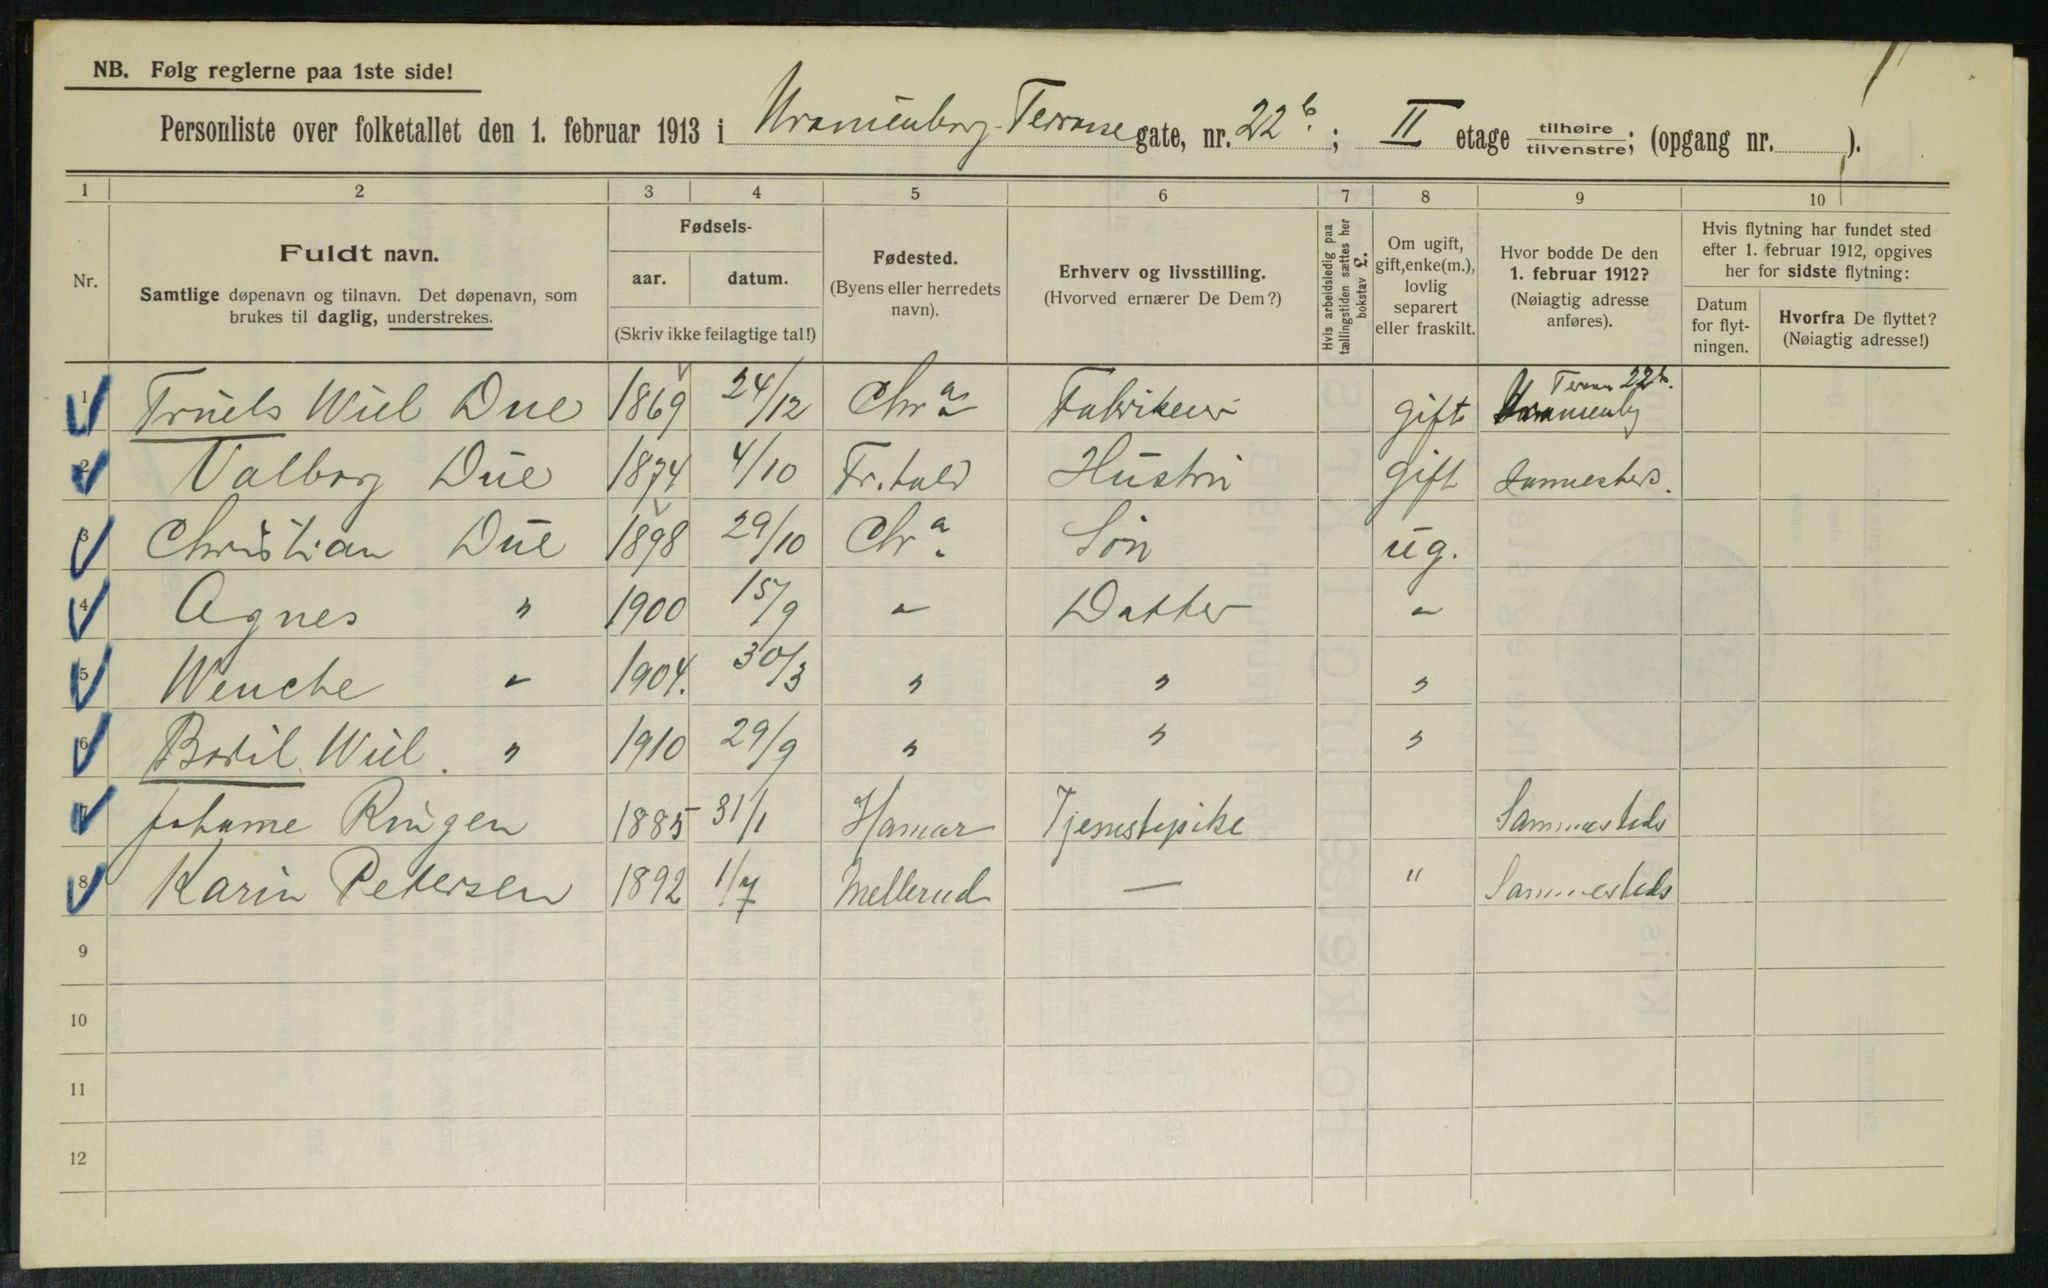 NB. Følg reglerne paa 1ste side!
Personliste over folketallet den 1. februar 1913 i Uranienborg Terrasse gate, nr. 22 b.; II etage tilhøire / tilvenstre; (opgang nr. ).
1 2 3 4 5 6 7 8 9 10
Nr.
Fuldt navn.
Samtlige døpenavn og tilnavn. Det døpenavn, som
brukes til daglig, understrekes.
Fødsels-
aar. datum.
(Skriv ikke feilagtige tal!)
Fødested.
(Byens eller herredets
navn).
Erhverv og livsstilling.
(Hvorved ernærer De Dem?)
Hvis arbeidsledig paa
tællingstiden sættes her
bokstav L.
Om ugift,
gift, enke(m.),
lovlig
separert
eller fraskilt.
Hvor bodde De den
1. februar 1912?
(Nøiagtig adresse
anføres).
Hvis flytning har fundet sted
efter 1. februar 1912, opgives
her for sidste flytning:
Datum
for flyt-
ningen.
Hvorfra De flyttet?
(Nøiagtig adresse!)
1 Truels Wiel Due 1869 24/12 Chr a Fabrikeier gift Uranienbg Terras 22 b.
2 Valborg Due 1874 4/10 Fr.hald Hustru gift Sammesteds.
3 Christian Due 1898 29/10 Chr a. Søn ug.
4 Agnes " 1900 15/9 " Datter "
5 Wenche " 1904. 30/3 " " "
6 Bodil Wiel. " 1910 29/9 " " "
7 Johanne Ringen 1885 31/1 Hamar Tjenestepike Sammesteds
8 Karin Petersen 1892 1/7 Mellerud — " Sammesteds
9
10
11
12